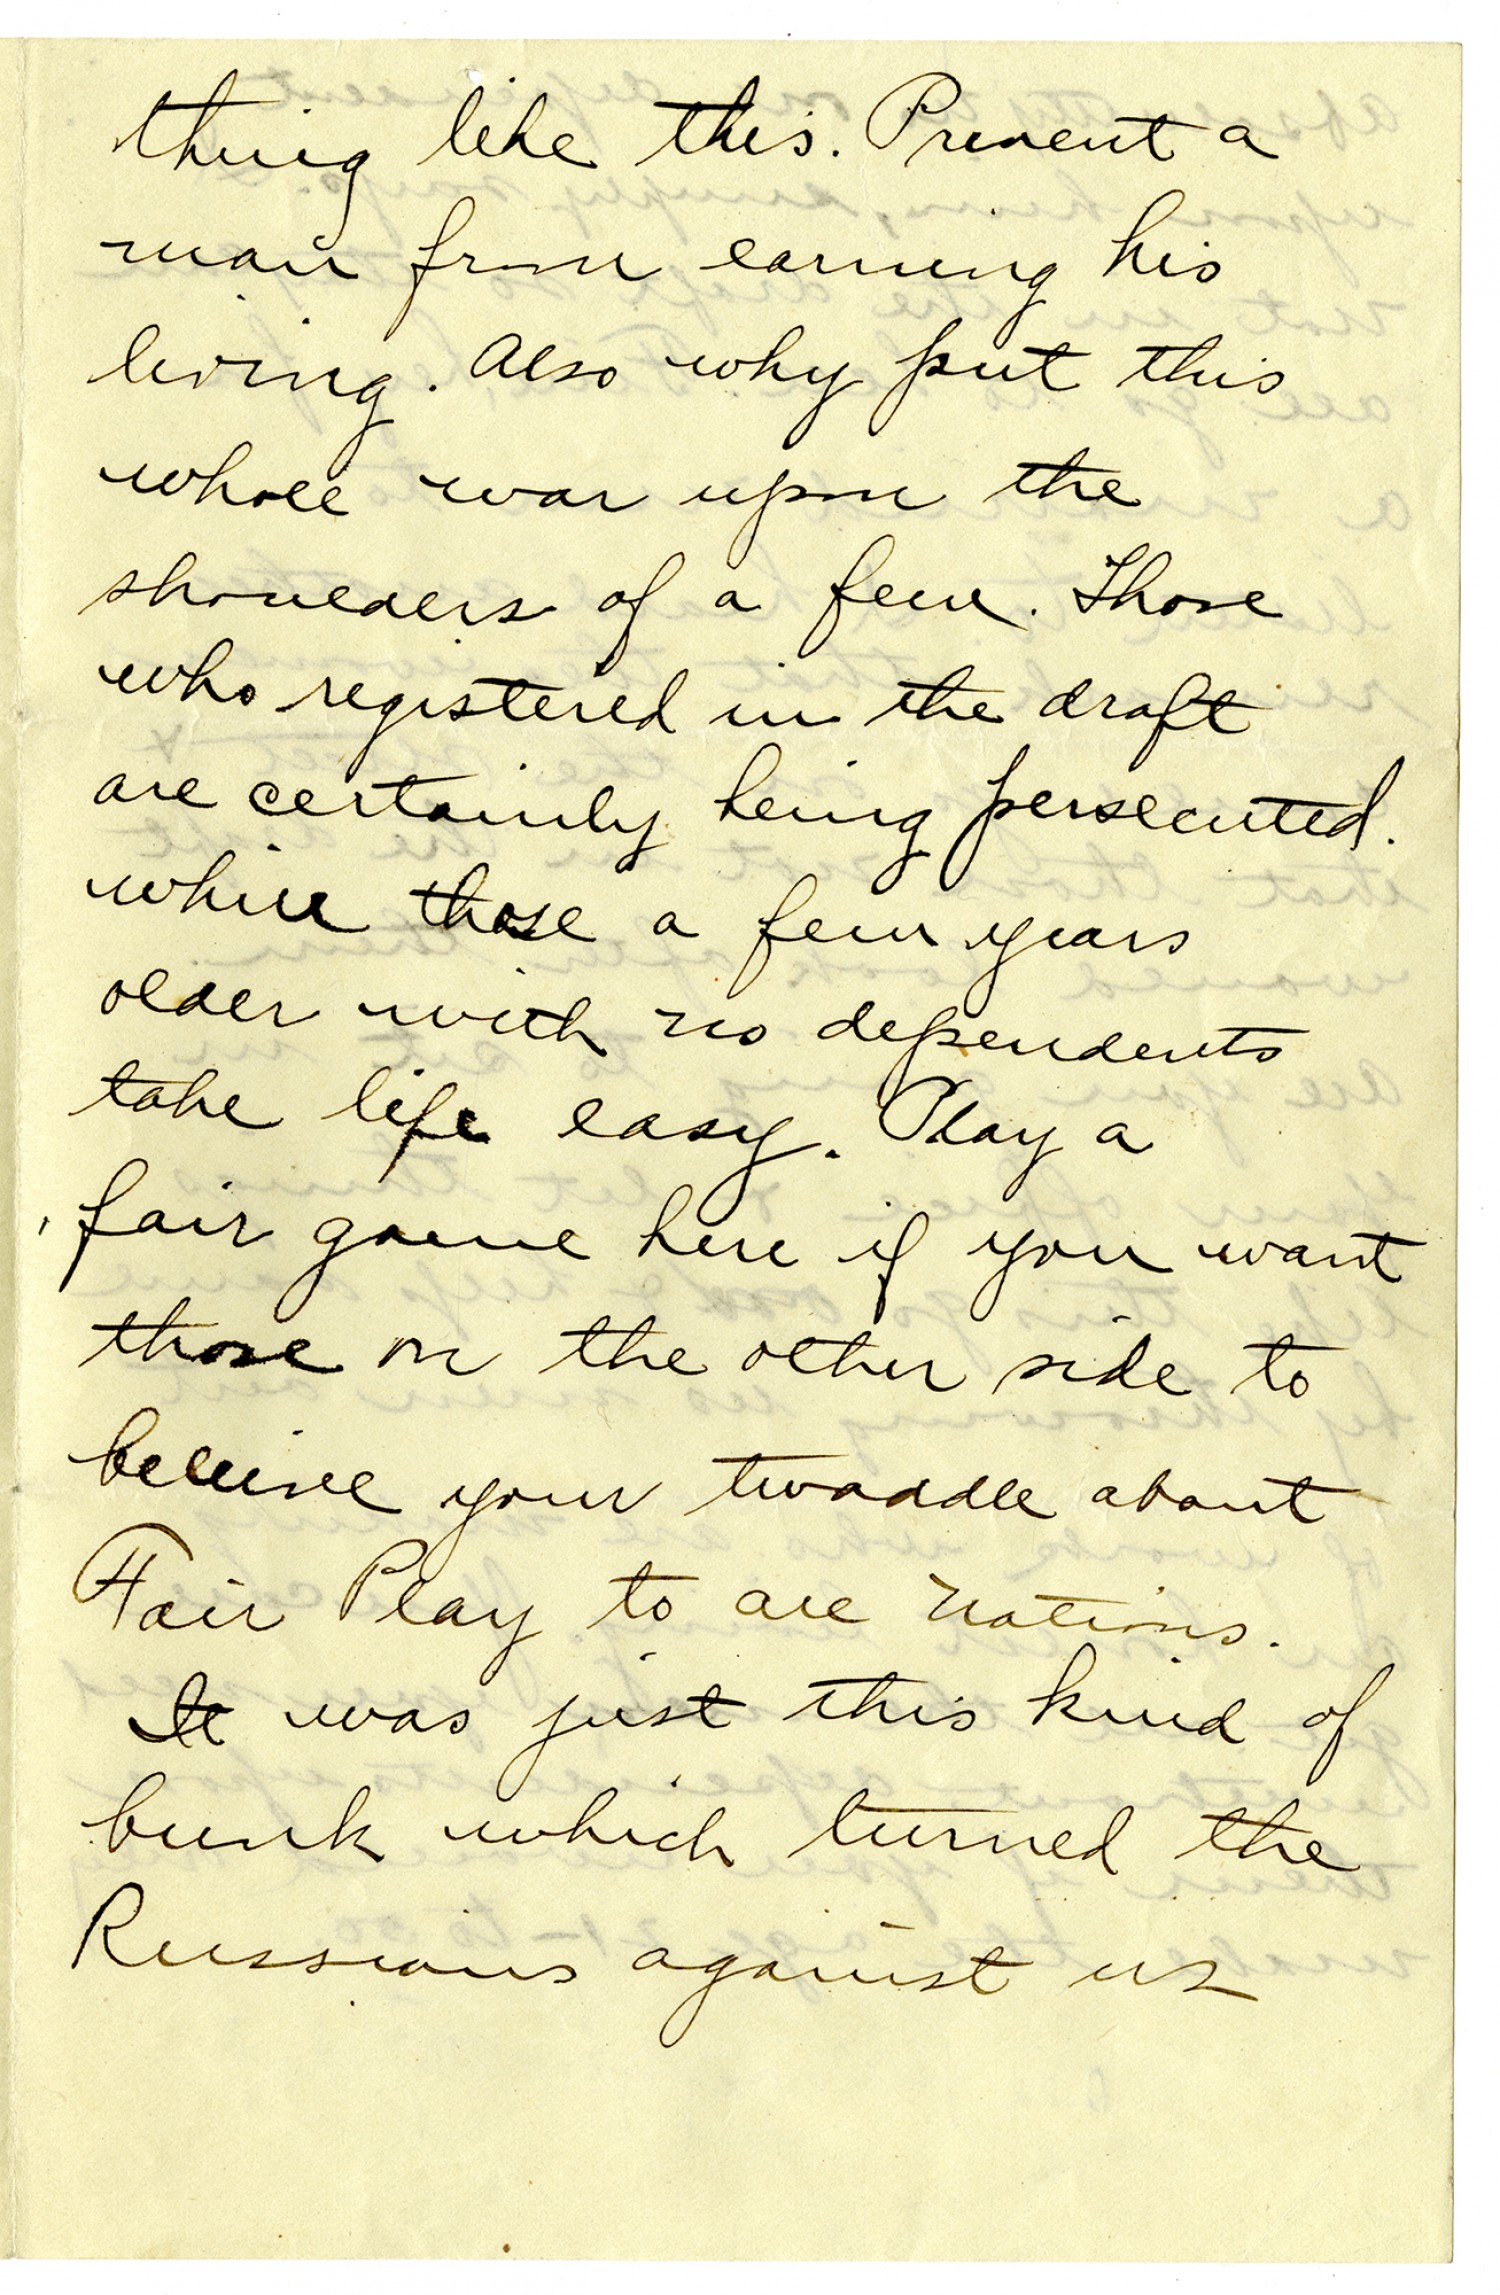 thing like this. Prevent a
man from earning his
living. Also why put this
whole war upon the
shoulders of a few. Those
who registered in the draft
are certainly being persecuted.
while those a few years
older with no dependents
take life easy. Play a
fair game here if you want
those on the other side to
believe your twaddle about
Fair Play to all nations.
It was just this kind of
bunk which turned the
Russians against us